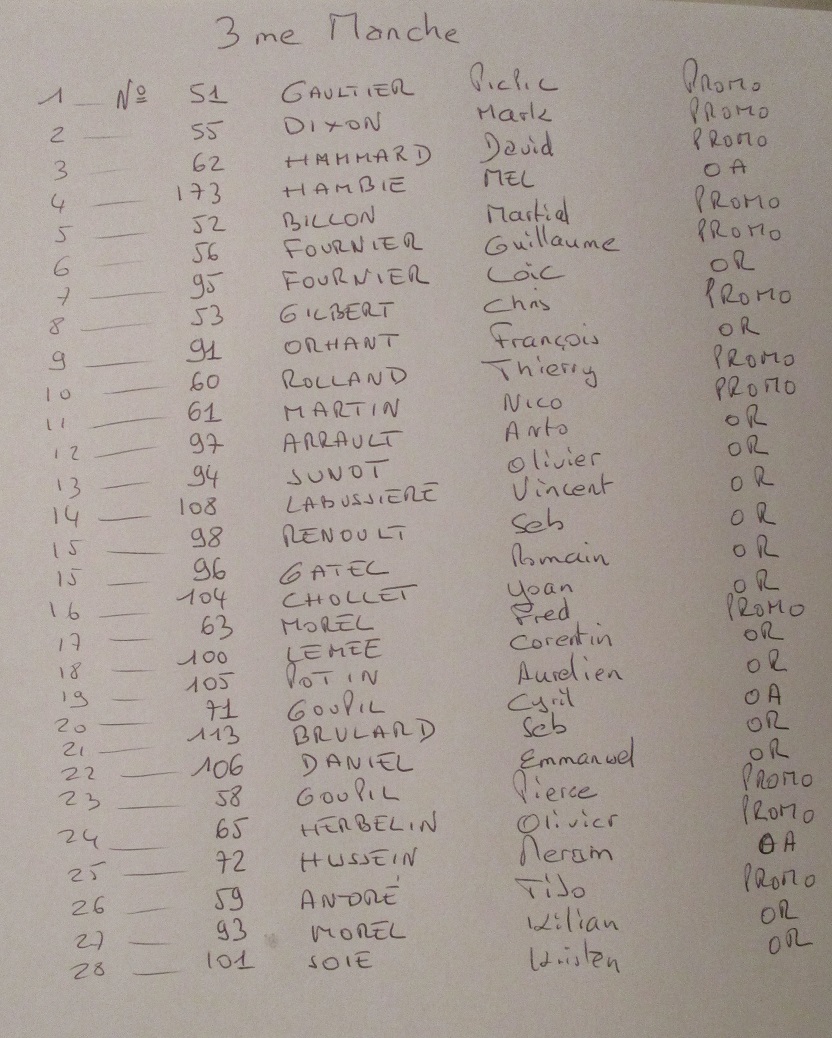 3me Manche
1 Nº 51 GAULTIER Picpic PROMO
2 55 DIXON Mark PROMO
3 62 HAMMARD David PROMO
4 173 HAMBIE MEL OA
5 52 BILLON Martial PROMO
6 56 FOURNIER Guillaume PROMO
7 95 FOURNIER Loïc OR
8 53 GILBERT Chris PROMO
9 91 ORHANT François OR
10 60 ROLLAND Thierry PROMO
11 61 MARTIN Nico PROMO
12 97 ARRAULT Anto OR
13 94 SUNOT Olivier OR
14 108 LABUSSIERE Vincent OR
15 98 RENOULT Seb OR
15 96 GATEL Romain OR
16 104 CHOLLET Yoan OR
17 63 MOREL Fred PROMO
18 100 LEMEE Corentin OR
19 105 POTIN Aurelien OR
20 71 GOUPIL Cyril OA
21 113 BRULARD Seb OR
22 106 DANIEL Emmanuel OR
23 58 GOUPIL Pierce PROMO
24 65 HERBELIN Olivier PROMO
25 72 HUSSEIN OA
26 59 ANDRÉ PROMO
27 93 MOREL Kilian OR
28 101 SOIE Kristen OR